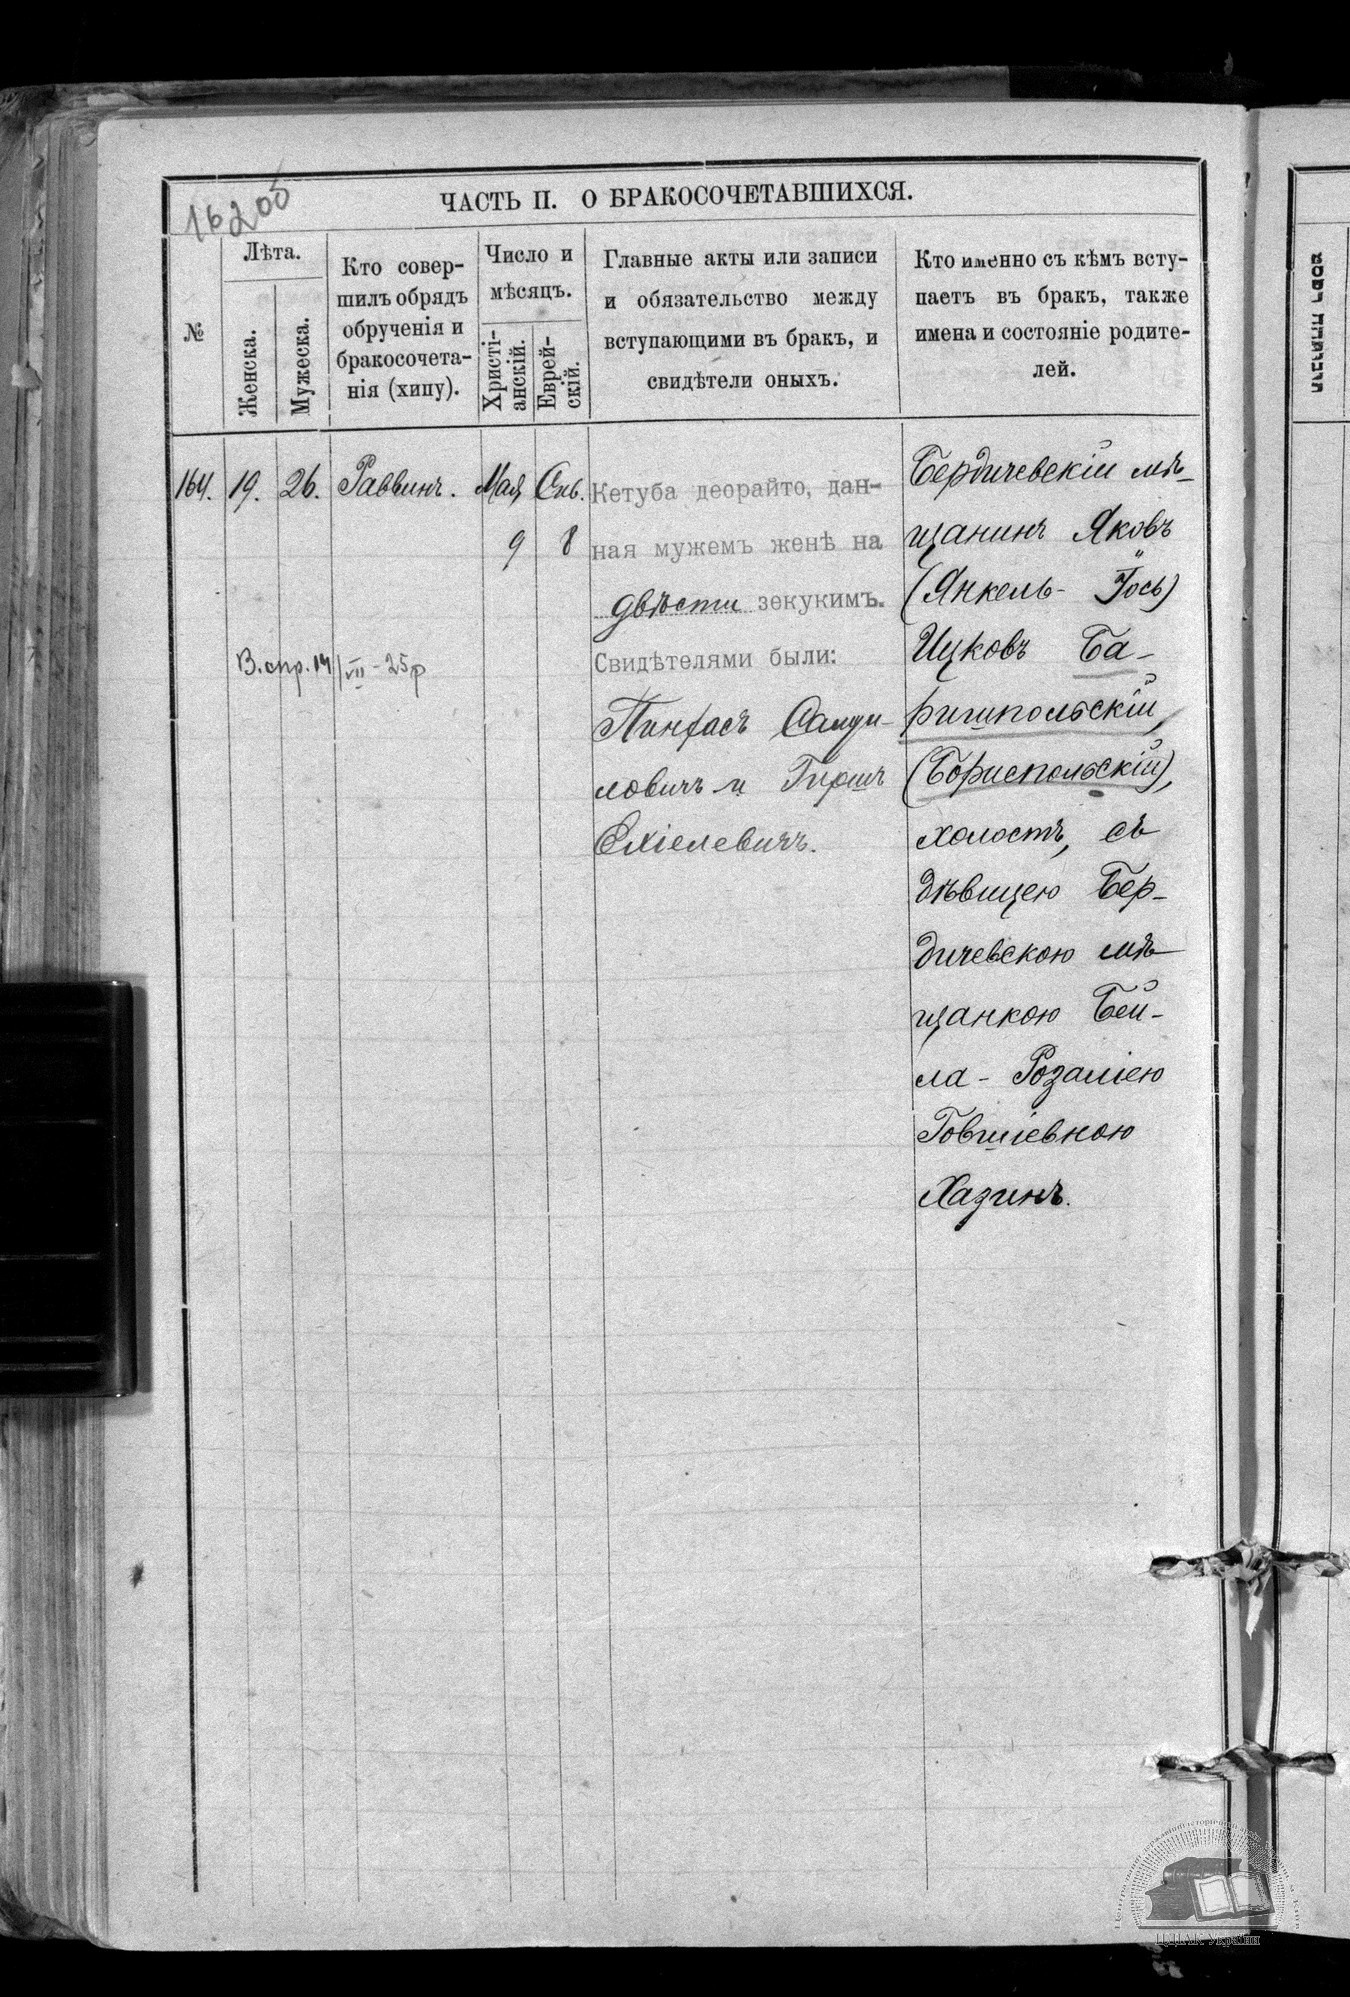 16205
ЧАСТЬ II. О БРАКОСОЧЕТАВШИХСЯ.
№
Лѣта.
Женска.
Мужеска.
Кто совер-
шилъ обрядъ
обрученія и
бракосочета-
нія (хипу).
Число и
мѣсяцъ.
Христі-
анскій.
Еврей-
скій.
Главные акты или записи
и обязательство между
вступающими въ бракъ, и
свидѣтели оныхъ.
Кто именно съ кѣмъ всту-
паетъ въ бракъ, также
имена и состояніе родите-
лей.
164.
19.
26.
Раввинъ.
Мая
9
8
В. спр. 14/VII-25р
Кетуба деорайто, дан-
ная мужемъ женѣ на
двѣсти зекукимъ.
Свидѣтелями были:
Пинхасъ
ловичъ и Гершъ
Ехіелевичъ.
Бердичевскій мѣ-
щанинъ Яковъ
(Янкель- Іось)
Ицковъ Ба-
ришпольскій,
(Бориспольскій),
холостъ, съ
дѣвицею Бер-
дичевскою мѣ-
щанкою Бей-
ла- Розаліею
Говшіевною
Хазинъ.
ЦДІАК України